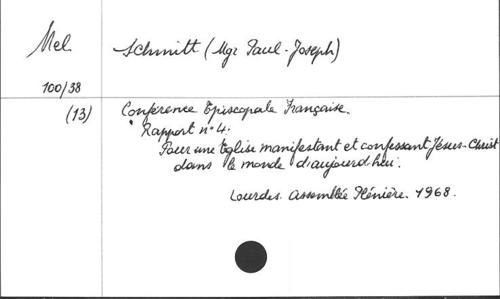 Mel.
Schmitt (Mgr Paul-Joseph)
100/38
(13)
Conférence Episcopale Française.
Rapport n° 4:
Pour une Eglise manifestant et confessant Jésus-Christ
dans le monde d'aujourd'hui.
Lourdes. Assemblée Plénière. 1968.